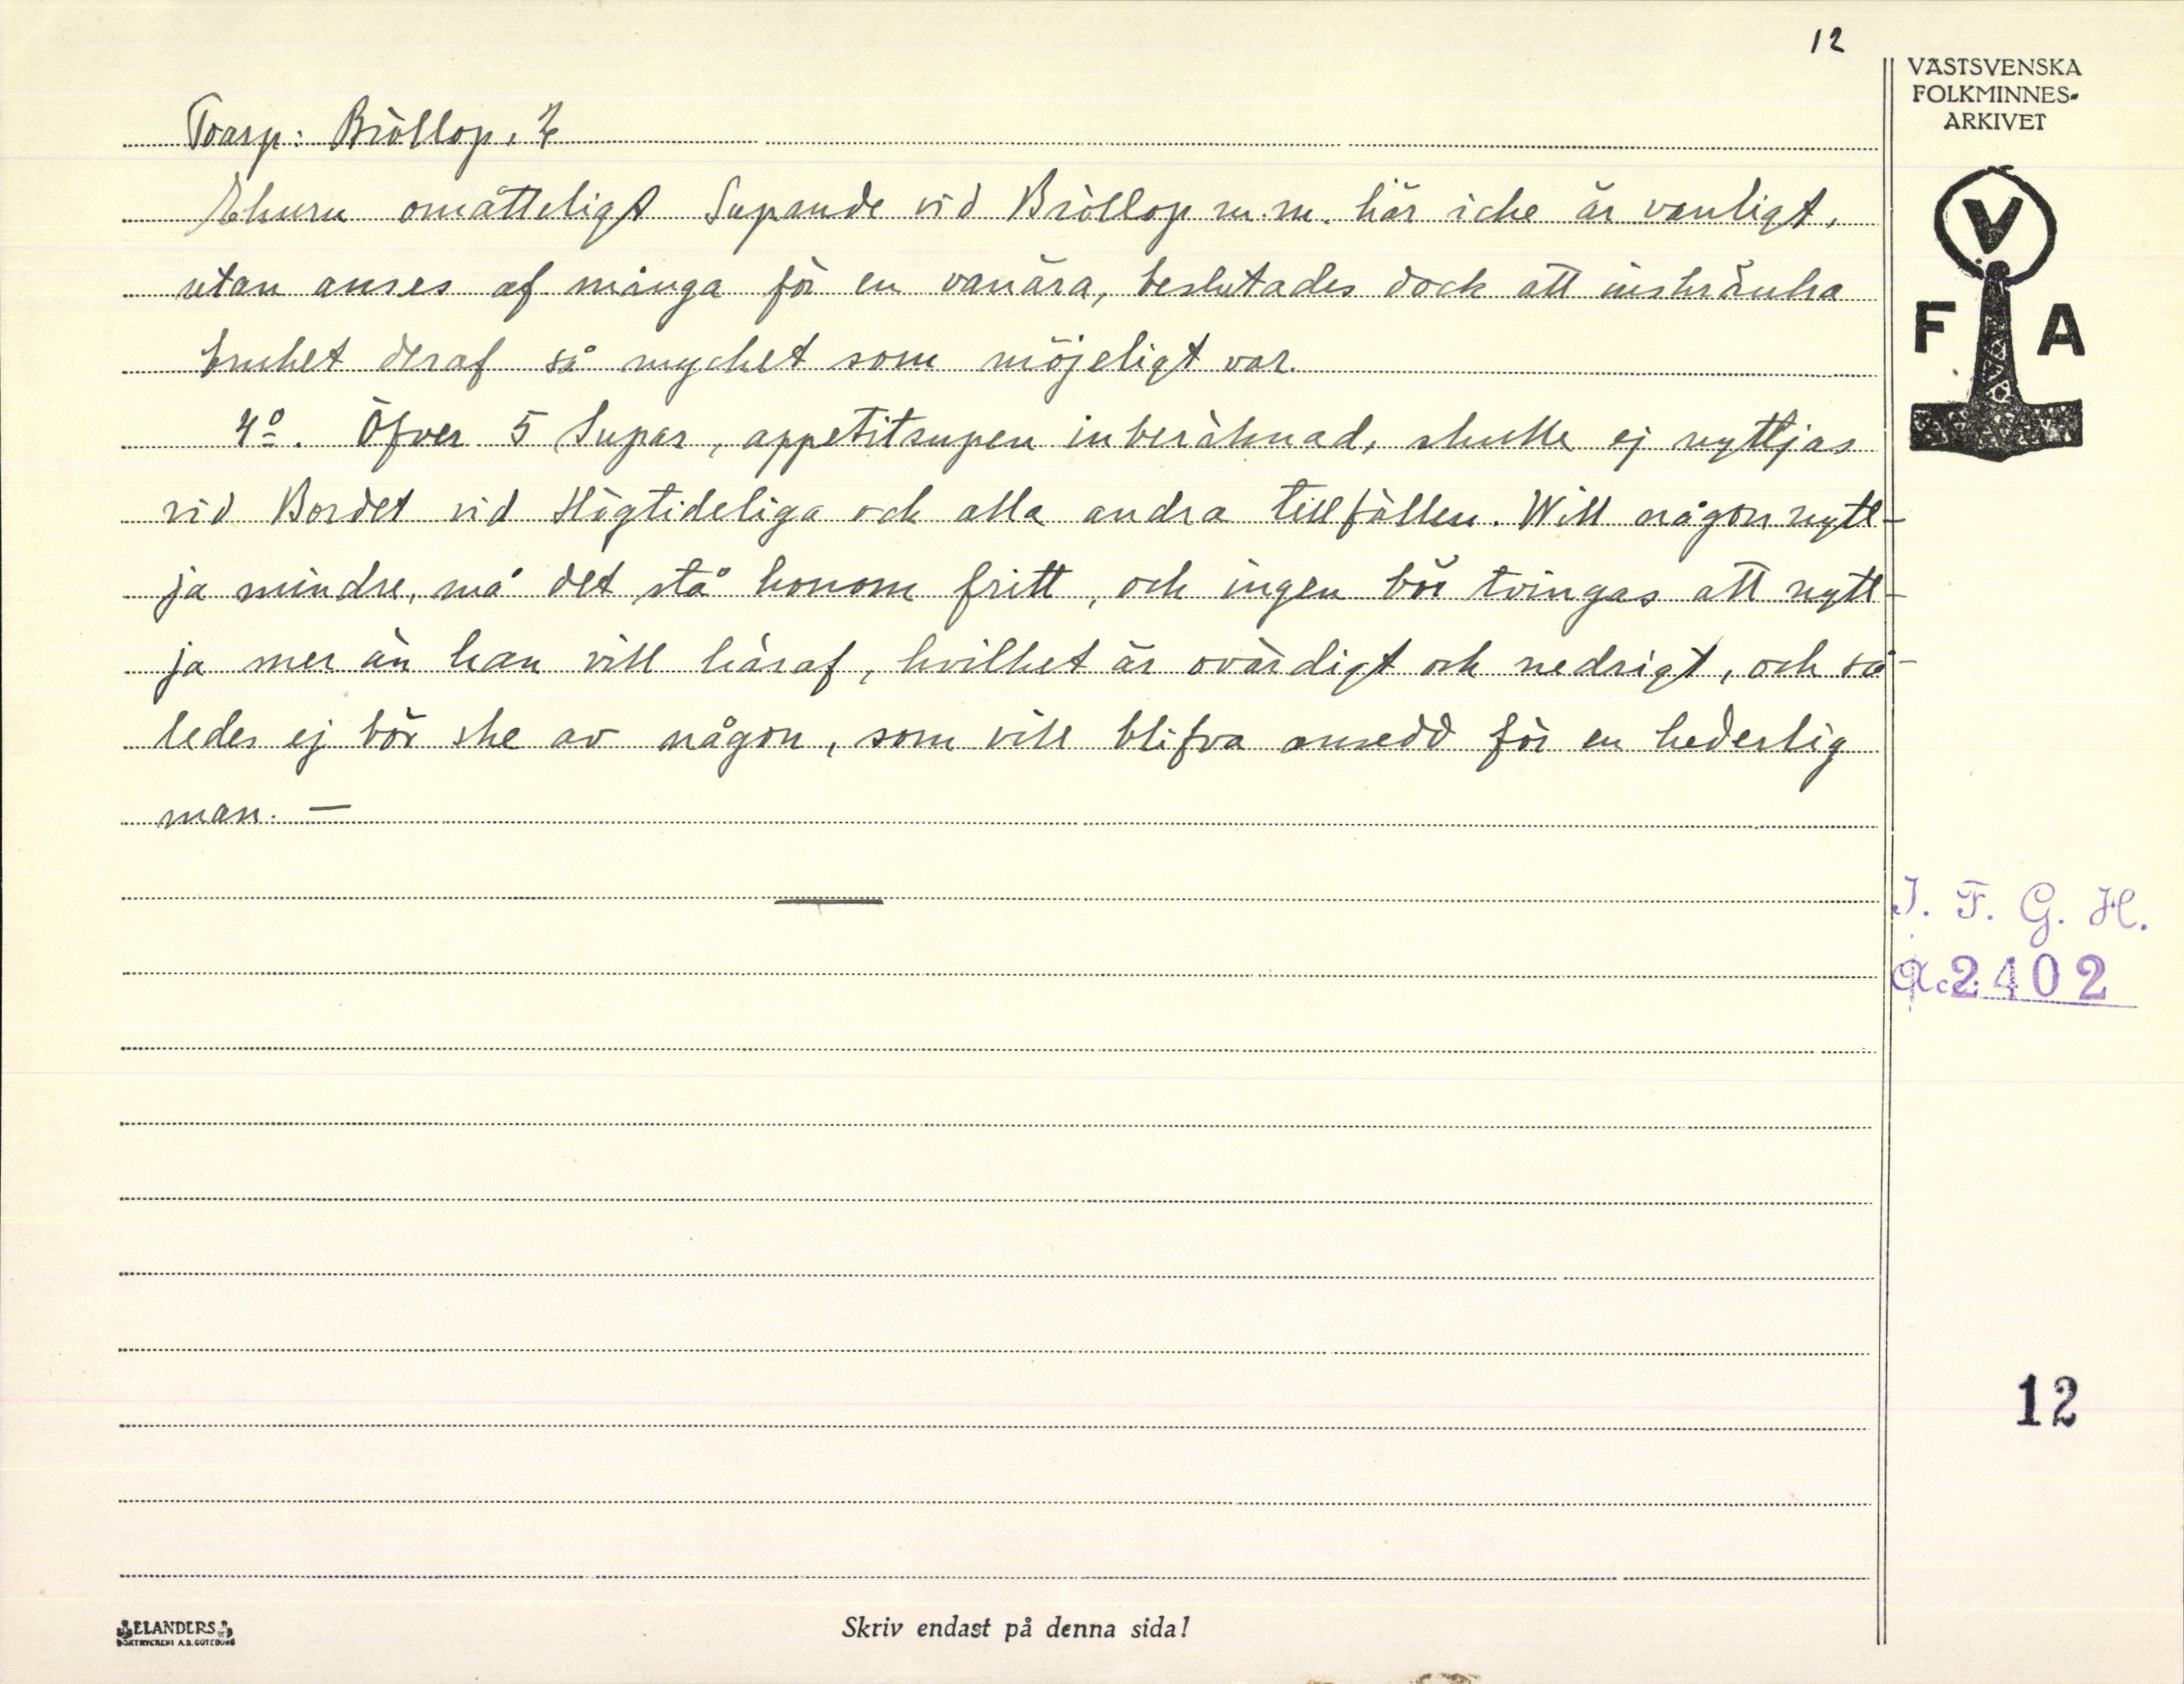 12
VÄSTSVENSKA
FOLKMINNES-
ARKIVET
V
F A
Toarp: Bröllop, 2
Ehuru omåtteligt Supande vid Bröllop m.m. här icke är vanligt,
utan anses af många för en vanära, beslutades dock att inskränka
bruket deraf så mycket som möjeligt var.
4º. Öfver 5 Supar, appetitsupen inberäknad, skulle ej nyttjas
vid Bordet vid Högtideliga och alla andra tillfällen. Will någon nytt-
ja mindre, må det stå honom fritt, och ingen bör tvingas att nytt-
ja mer än han vill häraf, hvilket är ovärdigt och nedrigt, och så-
ledes ej bör ske av någon, som vill blifva ansedd för en hederlig
man. —
I. F. G. H.
Acc. 2402
12
ELANDERS
BOKTRYCKERI A.B. GÖTEBORG
Skriv endast på denna sida!